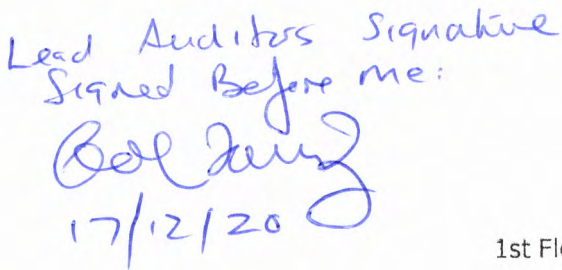 Lead Auditors Signature
Signed Before me:
17/12/20
1st Flo